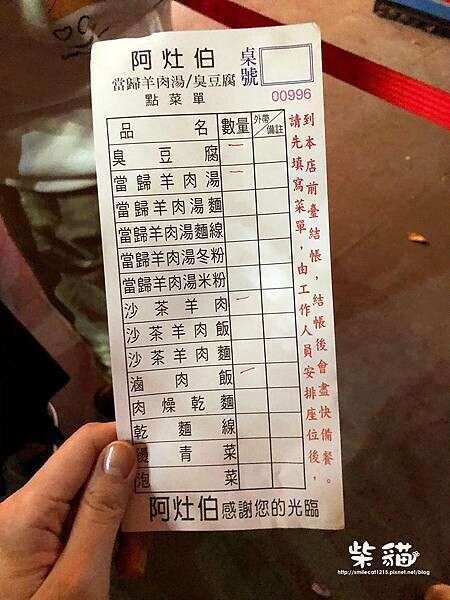 阿灶伯
桌號
當歸羊肉湯/臭豆腐
點菜單
00996
品名 數量 外帶/備註
臭豆腐 一
當歸羊肉湯 一
當歸羊肉湯麵
當歸羊肉湯麵線
當歸羊肉湯冬粉
當歸羊肉湯米粉
沙茶羊肉 一
沙茶羊肉飯
沙茶羊肉麵
滷肉飯 一
肉燥乾麵
乾麵線
燙青菜
泡菜
到本店前臺結帳，結帳後會盡快備餐。
請先填寫菜單，由工作人員安排座位後，
阿灶伯感謝您的光臨
柴貓
http://smilecat1215.pixnet.net/blog